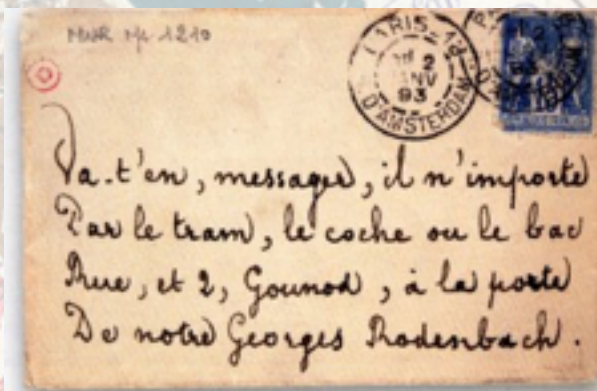 MNR Mp 1210
PARIS
2
JANV
93
D'AMSTERDAM
Va-t'en, messager, il n'importe
Par le tram, le coche ou le bac
Rue, et 2, Gounod, à la porte
De notre Georges Rodenbach.